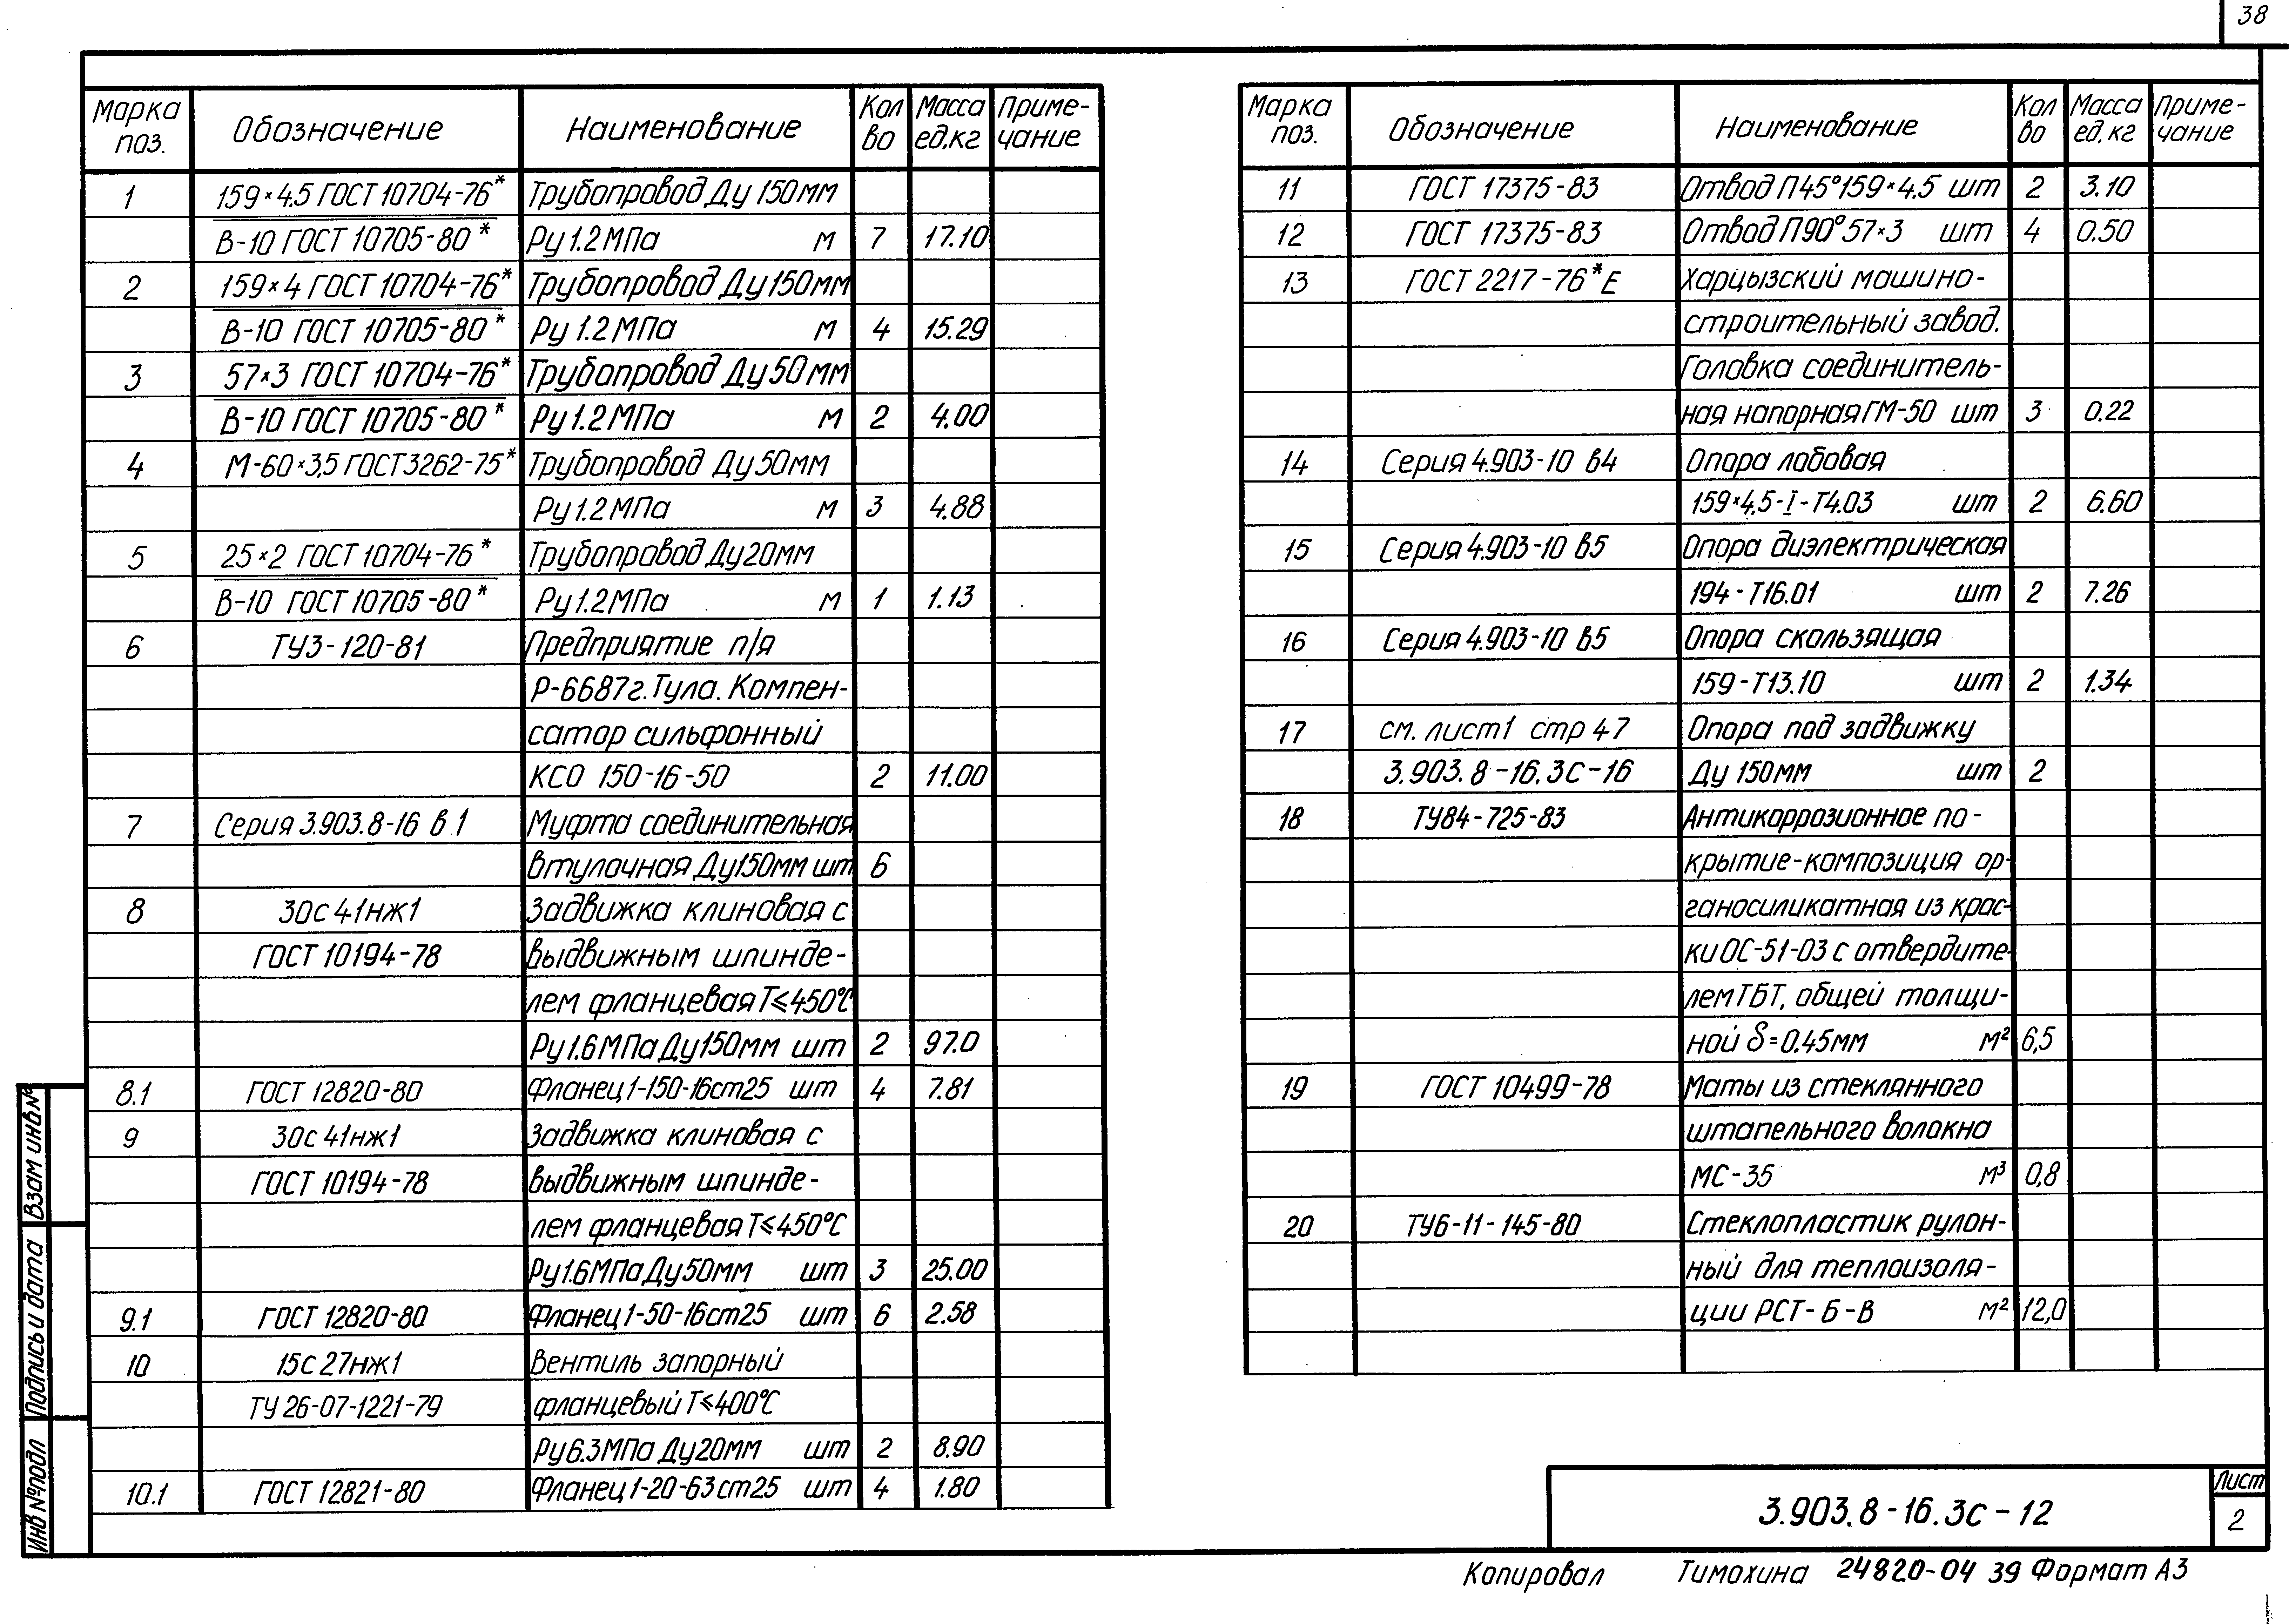 38
Марка поз. Обозначение Наименование Кол во Масса ед.кг Приме-чание
1 159×4.5 ГОСТ 10704-76* Трубопровод Ду 150мм
В-10 ГОСТ 10705-80* Ру 1.2 МПа м 7 17.10
2 159×4 ГОСТ 10704-76* Трубопровод Ду 150мм
В-10 ГОСТ 10705-80* Ру 1.2 МПа м 4 15.29
3 57×3 ГОСТ 10704-76* Трубопровод Ду 50мм
В-10 ГОСТ 10705-80* Ру 1.2 МПа м 2 4.00
4 М-60×3,5 ГОСТ 3262-75* Трубопровод Ду 50мм
Ру 1.2 МПа м 3 4.88
5 25×2 ГОСТ 10704-76* Трубопровод Ду 20мм
В-10 ГОСТ 10705-80* Ру 1.2 МПа м 1 1.13
6 ТУ3-120-81 Предприятие п/я
Р-6687 г. Тула. Компен-
сатор сильфонный
КСО 150-16-50 2 11.00
7 Серия 3.903.8-16 в.1 Муфта соединительная
втулочная Ду 150мм шт 6
8 30с 41нж1 Задвижка клиновая с
ГОСТ 10194-78 выдвижным шпинде-
лем фланцевая Т≤450°С
Ру 1.6 МПа Ду 150мм шт 2 97.0
8.1 ГОСТ 12820-80 Фланец 1-150-16ст25 шт 4 7.81
9 30с 41нж1 Задвижка клиновая с
ГОСТ 10194-78 выдвижным шпинде-
лем фланцевая Т≤450°С
Ру 1.6 МПа Ду 50мм шт 3 25.00
9.1 ГОСТ 12820-80 Фланец 1-50-16ст25 шт 6 2.58
10 15с 27нж1 Вентиль запорный
ТУ 26-07-1221-79 фланцевый Т≤400°С
Ру 6.3 МПа Ду 20мм шт 2 8.90
10.1 ГОСТ 12821-80 Фланец 1-20-63ст25 шт 4 1.80
Марка поз. Обозначение Наименование Кол во Масса ед.кг Приме-чание
11 ГОСТ 17375-83 Отвод П45°159×4.5 шт 2 3.10
12 ГОСТ 17375-83 Отвод П90°57×3 шт 4 0.50
13 ГОСТ 2217-76*Е Харцызский машино-
строительный завод.
Головка соединитель-
ная напорная ГМ-50 шт 3 0.22
14 Серия 4.903-10 в4 Опора лобовая
159×4.5-I-Т4.03 шт 2 6.60
15 Серия 4.903-10 в5 Опора диэлектрическая
194-Т16.01 шт 2 7.26
16 Серия 4.903-10 в5 Опора скользящая
159-Т13.10 шт 2 1.34
17 см. лист 1 стр 47 Опора под задвижку
3.903.8-16.3С-16 Ду 150мм шт 2
18 ТУ84-725-83 Антикоррозионное по-
крытие-композиция ор-
ганосиликатная из крас-
ки ОС-51-03 с отвердите-
лем ТБТ, общей толщи-
ной δ=0.45мм м² 6,5
19 ГОСТ 10499-78 Маты из стеклянного
штапельного волокна
МС-35 м³ 0,8
20 ТУ6-11-145-80 Стеклопластик рулон-
ный для теплоизоля-
ции РСТ-Б-В м² 12,0
Взам инв №
Подпись и дата
Инв № подл
3.903.8-16.3С-12
Лист
2
Копировал Тимохина 24820-04 39 Формат А3